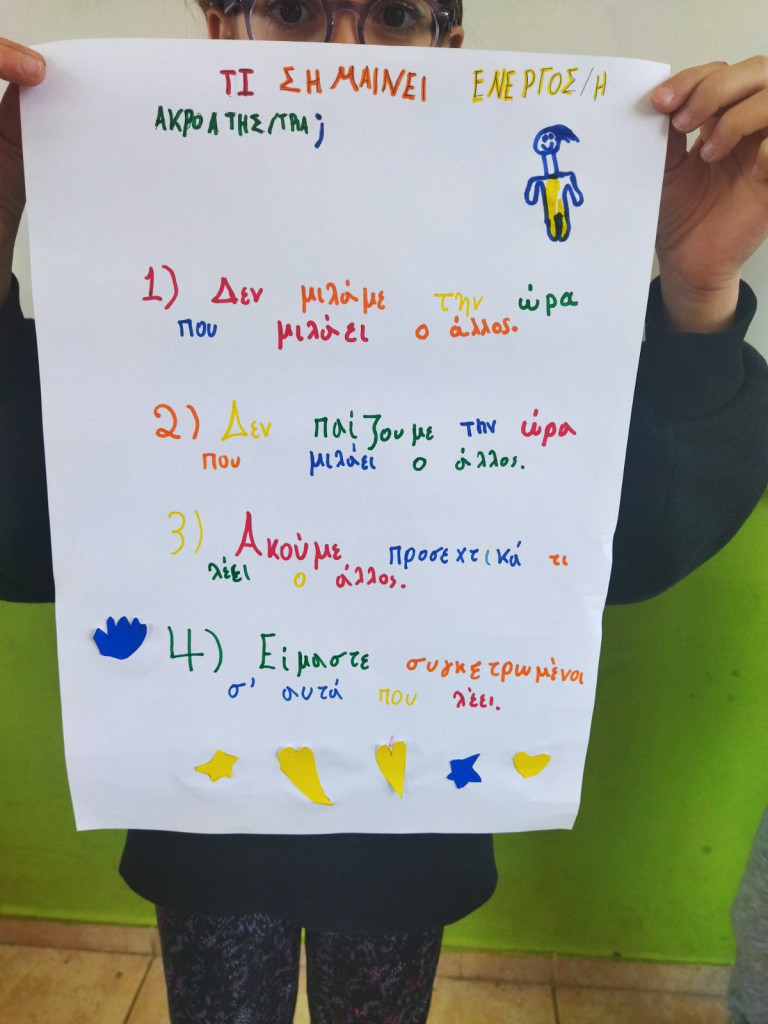 ΤΙ ΣΗΜΑΙΝΕΙ ΕΝΕΡΓΟΣ/Η
ΑΚΡΟΑΤΗΣ/ΤΡΙΑ;
1) Δεν μιλάμε την ώρα
που μιλάει ο άλλος.
2) Δεν παίζουμε την ώρα
που μιλάει ο άλλος.
3) Ακούμε προσεχτικά τι
λέει ο άλλος.
4) Είμαστε συγκετρωμένοι
σ' αυτά που λέει.